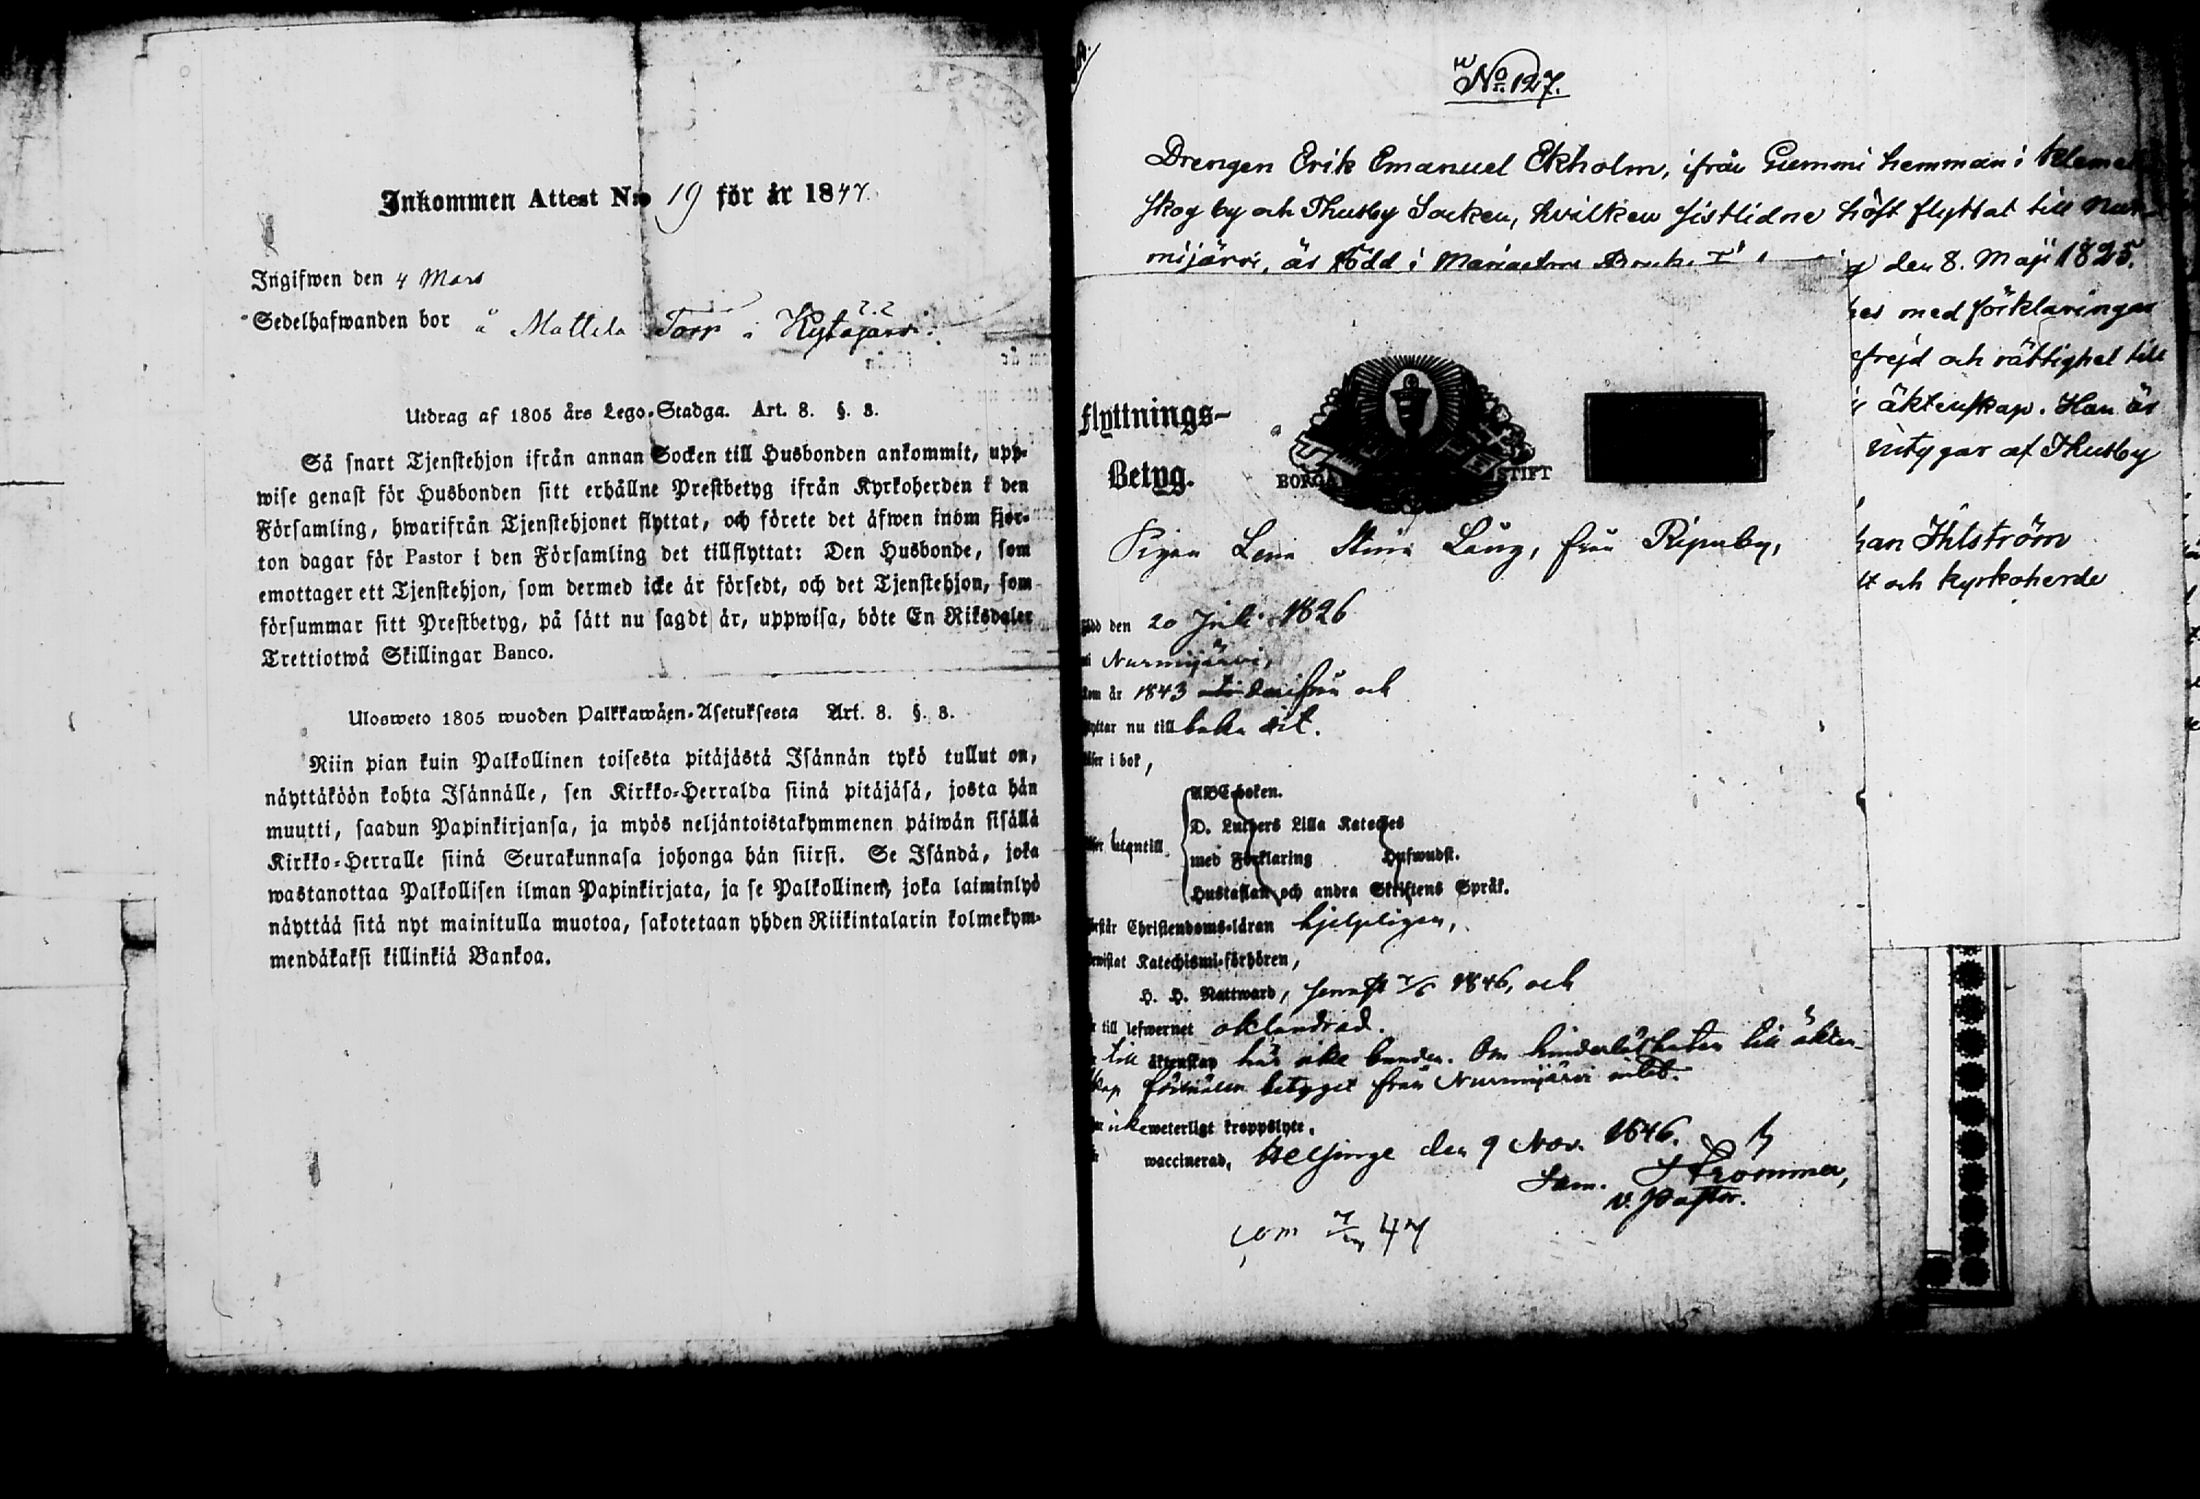 Inkommen Attest N:o 19 för år 1847.
Ingifwen den 4 Mars
Sedelhafwanden bor å Mattila Torp i Kytäjärvi.
Utdrag af 1805 års Lego-Stadga. Art. 8. §. 8.
Så snart Tjenstehjon ifrån annan Socken till Husbonden ankommit, upp-
wise genast för Husbonden sitt erhållne Prestbetyg ifrån Kyrkoherden i den
Församling, hwarifrån Tjenstehjonet flyttat, och förete det äfwen inom fjor-
ton dagar för Pastor i den Församling det tillflyttat: Den Husbonde, som
emottager ett Tjenstehjon, som dermed icke är försedt, och det Tjenstehjon, som
försummar sitt Prestbetyg, på sätt nu sagdt är, uppwisa, böte En Riksdaler
Trettiotwå Skillingar Banco.
Ulosweto 1805 wuoden Palkkawäen-Asetuksesta Art. 8. §. 8.
Niin pian kuin Palkollinen toisesta pitäjästä Isännän tykö tullut on,
näyttäköön kohta Isännälle, sen Kirkko-Herralda siinä pitäjäsä, josta hän
muutti, saadun Papinkirjansa, ja myös neljäntoistakymmenen päiwän sisällä
Kirkko-Herralle siinä Seurakunnasa johonga hän siirsi. Se Isändä, joka
wastanottaa Palkollisen ilman Papinkirjata, ja se Palkollinen, joka laiminlyö
näyttää sitä nyt mainitulla muotoa, sakotetaan yhden Riikintalarin kolmekym-
mendäkaksi killinkiä Bankoa.
No 127.
Drengen Erik Emanuel Ekholm, ifrån Gummi hemman i Kleme
skog by och Thusby Socken, hvilken sistlidne höst flyttat till Nur-
mijärvi, är född i
den 8. Maji 1825.
med förklaringar
frejd och rättighet till
äktenskap. Han är
intygar af Thusby
han Ihlström
och kyrkoherde
Flyttnings-
Betyg.
BORGÅ STIFT
Pigan Lena Stina Lång, från Ripuby,
född den 20 Juli 1826
i Nurmijärvi,
kom år 1843 derifrån och
flyttar nu till baka dit.
läser i bok,
utantill
ABC-boken.
D. Luthers Lilla Kateches
med Förklaring Hufwudst.
Hustaflan och andra Skriftens Språk.
Christendoms-läran hjelpligen,
Katechismi-förhören,
H. H. Nattward, senast 7/6 1846, och
till lefwernet oklandrad.
till äktenskap här icke bunden. Om hinderlösheten till äkten-
skap förmäler betyget från Nurmijärvi intet.
icke weterligt kroppslyte.
waccinerad, Helsinge den 9 Nov. 1846.
Sam. Strömmer,
v. Pastor.